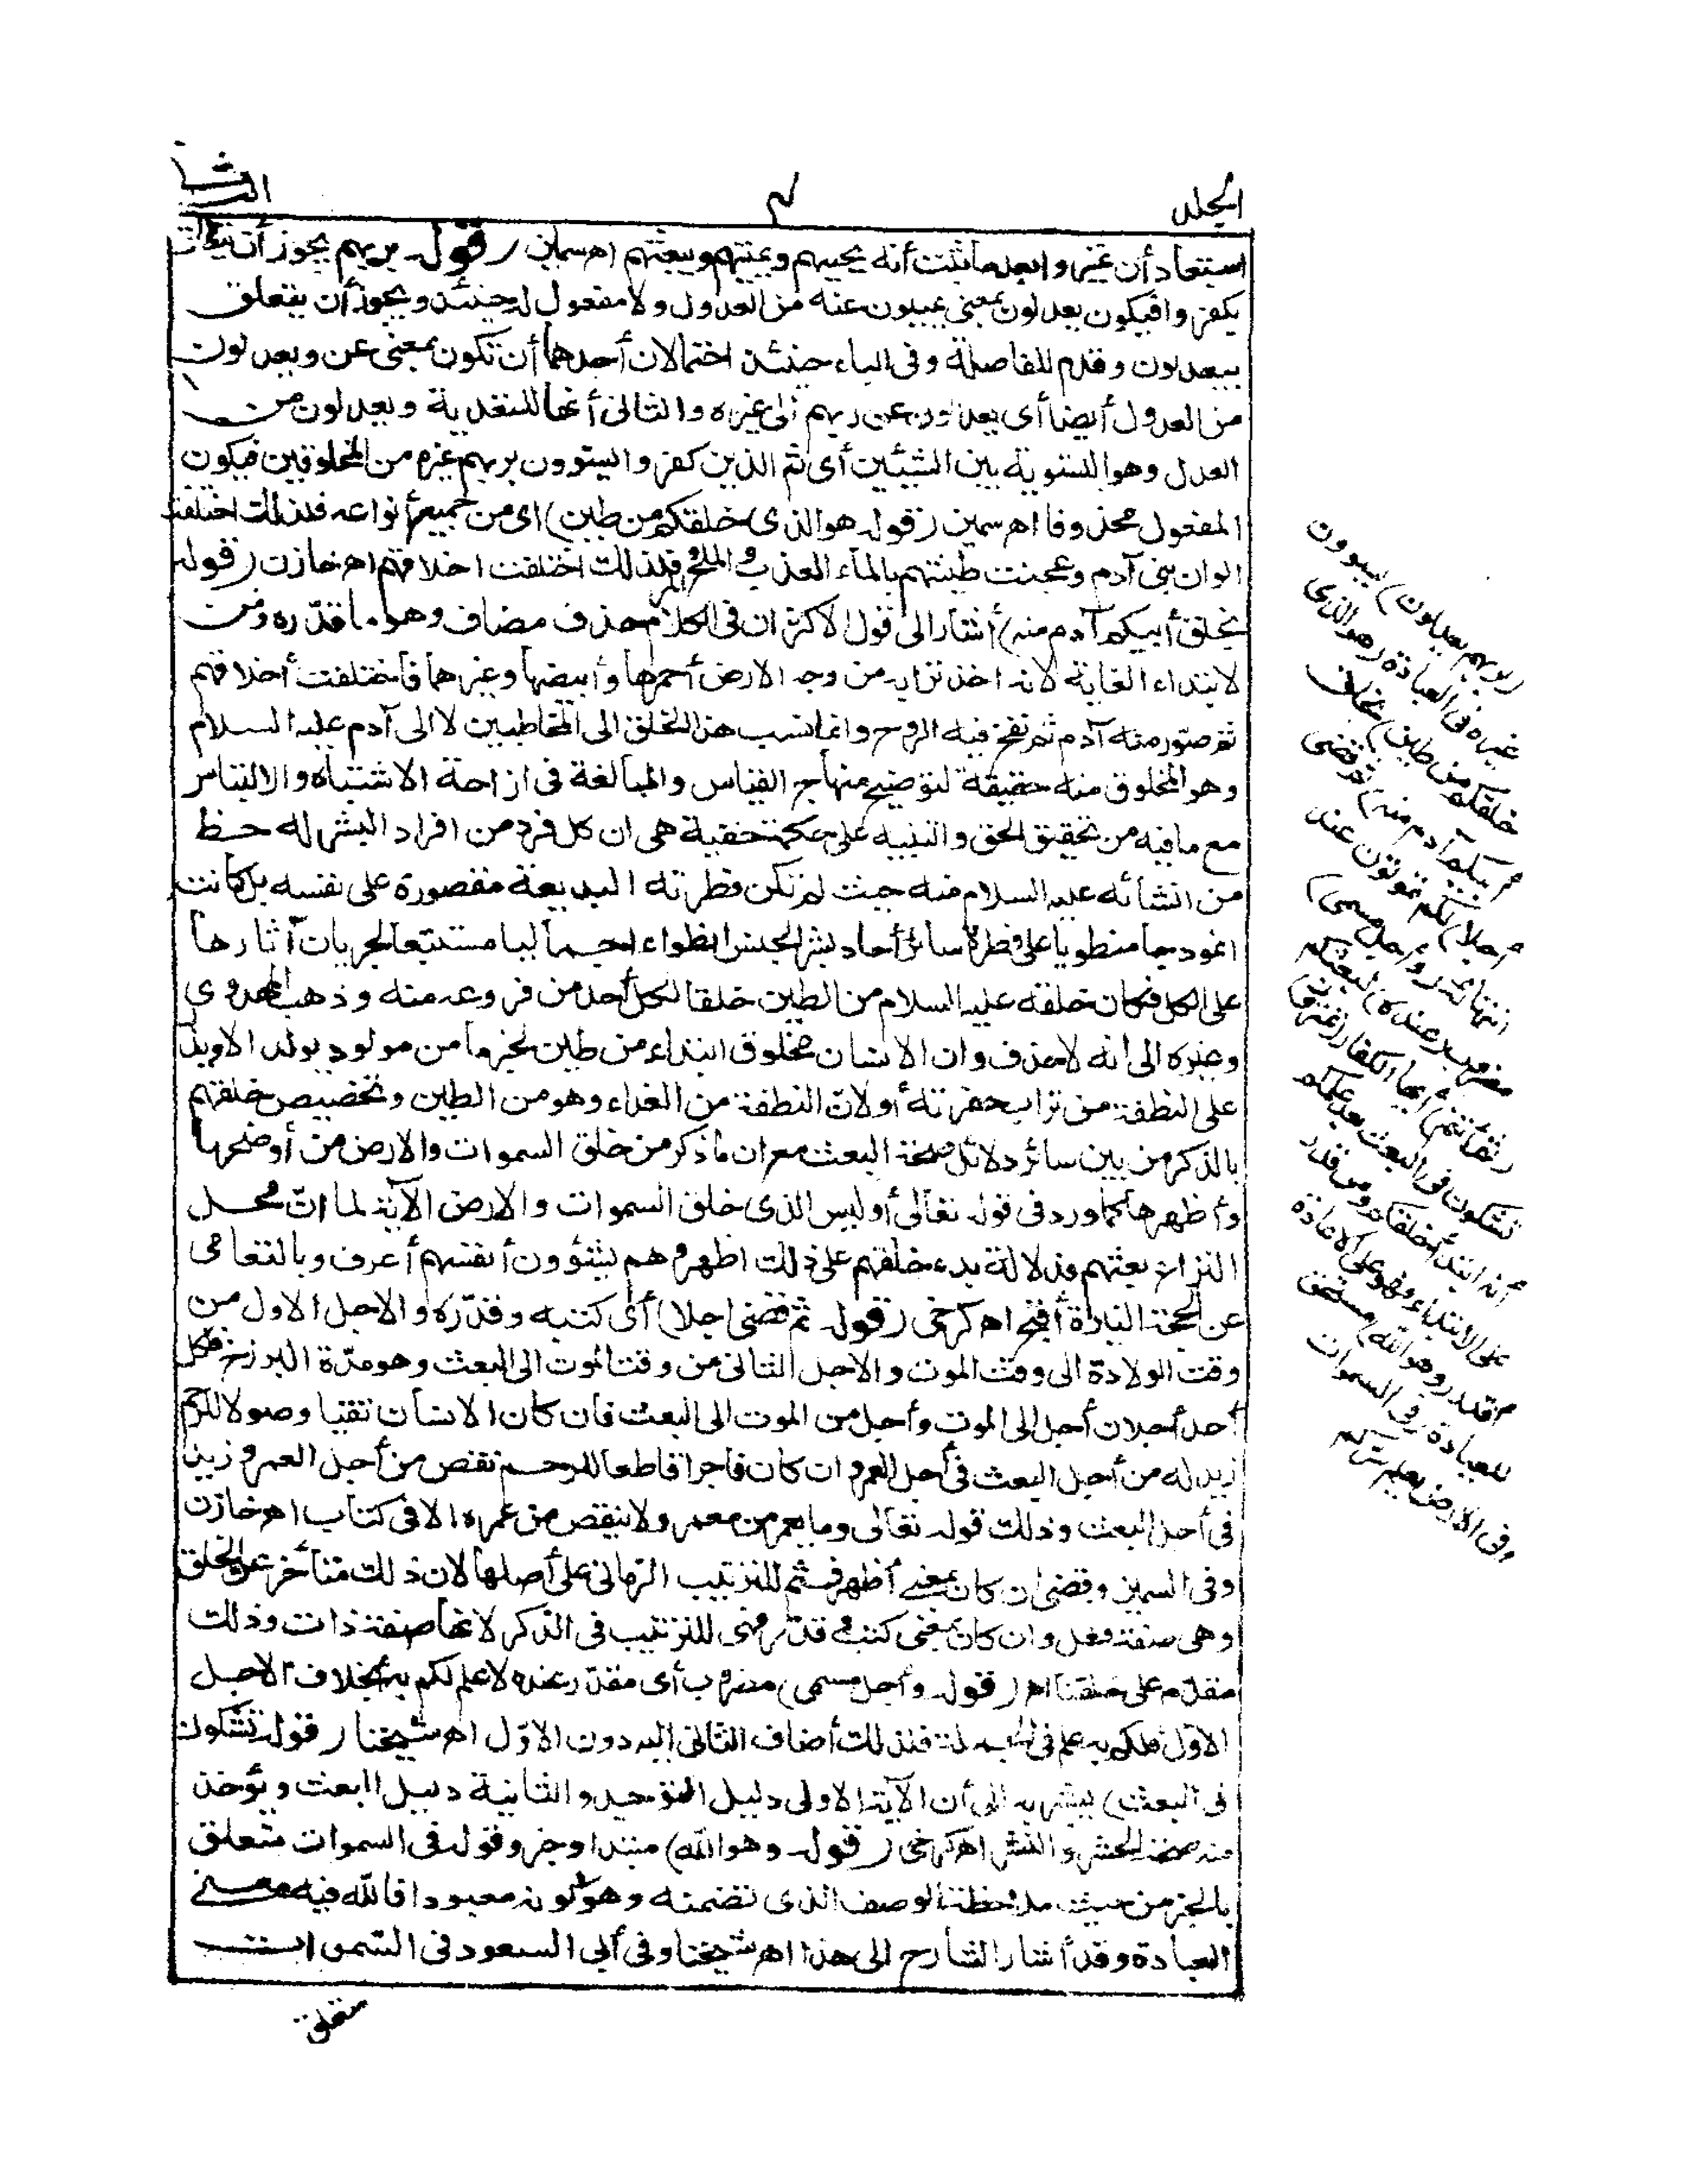 الجلد
٤
الثا
استبعاد أن يمتروا بعد ما ثبت أنه يحييهم ويميتهم ويبعثهم اه سمين (قوله بربهم) يجوز أن يتعلق
بكفروا فيكون يعدلون بمعنى يميلون عنه من العدول ولا مفعول له حينئذ ويجوز أن يتعلق
بيعدلون وقدم للفاصلة وفي الباء حينئذ احتمالان أحدهما أن تكون بمعنى عن ويعدلون
من العدول أيضا أى يعدلون عن ربهم إلى غيره والثانى أنها للتعدية ويعدلون من
العدل وهو التسوية بين الشيئين أى ثم الذين كفروا يستوون بربهم غيره من المخلوقين فيكون
المفعول محذوفا اه سمين (قوله هو الذى خلقكم من طين) اى من جميع أنواعه فلذلك اختلفت
الوان بنى آدم وعجنت طينتهم بالماء العذب والملح والمر فلذلك اختلفت اخلاقهم اه خازن (قوله
بخلق أبيكم آدم منه) أشار الى قول الاكثر ان فى الكلام حذف مضاف وهو ما قدّره ومن
لابتداء الغاية لانه اخذ ترابه من وجه الارض أحمرها وأبيضها وغيرهما فاختلفت أخلاقهم
ثم صوّر منه آدم ثم نفخ فيه الروح وانما نسب هذا الخلق الى المخاطبين لا الى آدم عليه السلام
وهو المخلوق منه حقيقة لتوضيح منهاج القياس والمبالغة فى ازاحة الاشتباه والالتباس
مع ما فيه من تحقيق الحق والتنبيه على حكمة خفية هى ان كل فرد من افراد البشر له حظ
من انشائه عليه السلام منه حيث لم تكن فطرته البديعة مقصورة على نفسه بل كانت
انموذجا منطويا على فطرة سائر أحاد بشر الجنس انطواء اجماليا مستتبعا لجريان آثارها
على الكل فكان خلقه عليه السلام من الطين خلقا لكل أحد من فروعه منه وذهب المهدوى
وغيره الى أنه لا حذف وان الانسان مخلوق ابتداء من طين لخبر ما من مولود يولد الا ويذر
على النطفة من تراب حفرته أو لان النطفة من الغذاء وهو من الطين وتخصيص خلقهم
بالذكر من بين سائر دلائل صحة البعث مع ان ما ذكر من خلق السموات والارض من أوضحها
وأظهرها كما ورد فى قوله تعالى أوليس الذى خلق السموات والارض الآية لما انّ محل
النزاع بعثهم فدلالة بدء خلقهم على ذلك اظهر وهم بشؤون أنفسهم أعرف وبالتعامى
عن الحجة النيّرة أقبح اه كرخى (قوله ثم قضى اجلا) أى كتبه وقدّره والاجل الاول من
وقت الولادة الى وقت الموت والاجل الثانى من وقت الموت الى البعث وهو مدّة البرزخ فلكل
أحد أجلان أجل الى الموت وأجل من الموت الى البعث فان كان الانسان تقيا وصولا للرحم
زيد له من أجل البعث فى أجل العمر وان كان فاجرا قاطعا للرحم نقص من أجل العمر وزيد
فى أجل البعث وذلك قوله تعالى وما يعمر من معمر ولا ينقص من عمره الا فى كتاب اه خازن
وفى السمين وقضى ان كان بمعنى أظهر فثم للترتيب الزمانى على أصلها لان ذلك متأخر عن الخلق
وهى صفة فعل وان كان بمعنى كتب وقدّر فهى للترتيب فى الذكر لانها صفة ذات وذلك
مقدّم على خلقنا اه (قوله وأجل مسمى) مضروب أى مقدّر عنده لا علم لكم به بخلاف الاجل
الاوّل فلكم به علم فى الجملة فلذلك أضاف الثانى اليه دون الاوّل اه شيخنا (قوله تشكون
فى البعث) يشير به الى أن الآية الاولى دليل التوحيد والثانية دليل البعث ويؤخذ
منه صحة الحشر والنشر اه كرخى (قوله وهو الله) مبتدا وخبر وقوله فى السموات متعلق
بالخبر من حيث ملاحظة الوصف الذى تضمنه وهو كونه معبودا فالله فيه معنى
العبادة وقد أشار الشارح الى هذا اه شيخنا وفى أبى السعود فى السموات
متعلق
(بربهم يعدلون) يسوون
غيره فى العبادة (هو الذى
خلقكم من طين) بخلق
أبيكم آدم منه (ثم قضى
أجلا) لكم تموتون عند
انتهائه (وأجل مسمى)
مضروب (عنده) لبعثكم
(ثم أنتم) أيها الكفار (تمترون)
تشكون فى البعث بعد علمكم
أنه ابتدأ خلقكم ومن قدر
على الابتداء فهو على الاعادة
أقدر (وهو الله) مستحق
للعبادة (فى السموات
وفى الارض يعلم سركم